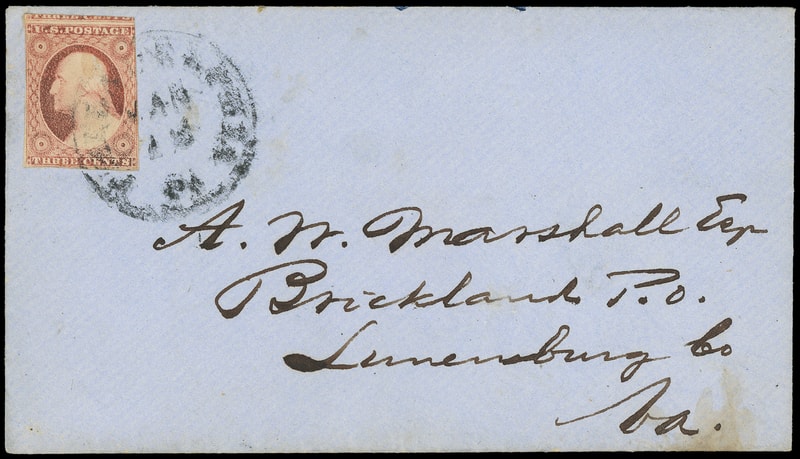 U.S. POSTAGE
THREE CENTS
JAN
PA
A. W. Marshall Esq
Brickland P.O.
Lunenburg Co
Va.